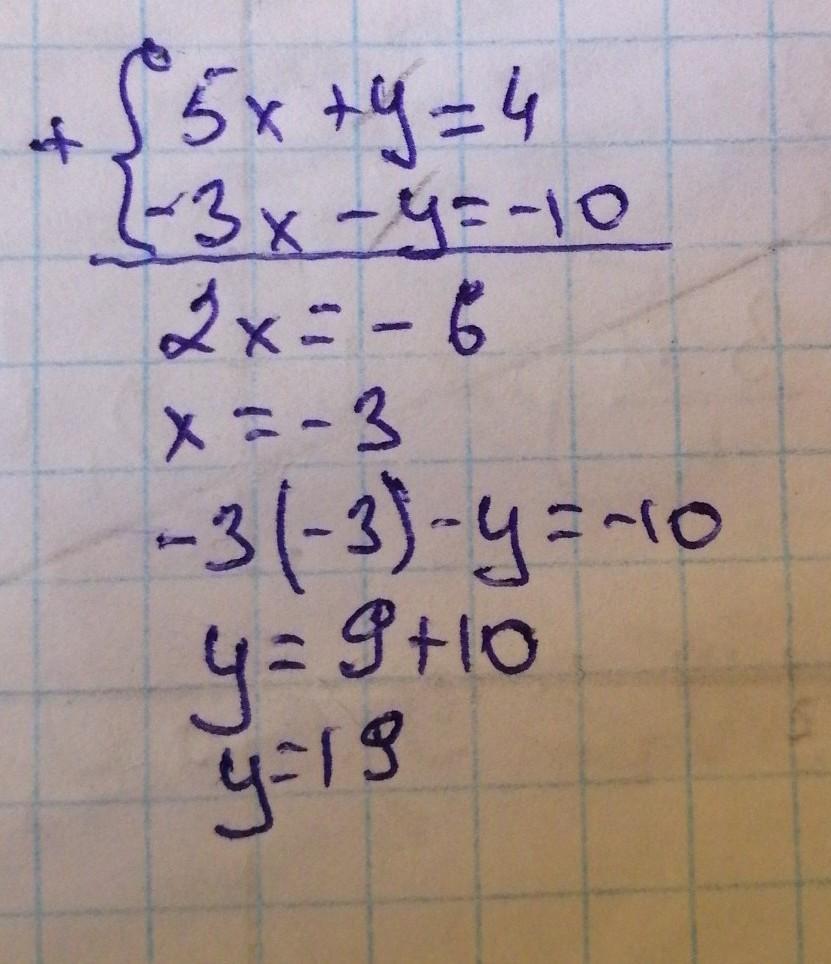 + { 5x + y = 4
-3x - y = -10
2x = - 6
x = - 3
-3(-3) - y = -10
y = 9 + 10
y = 19